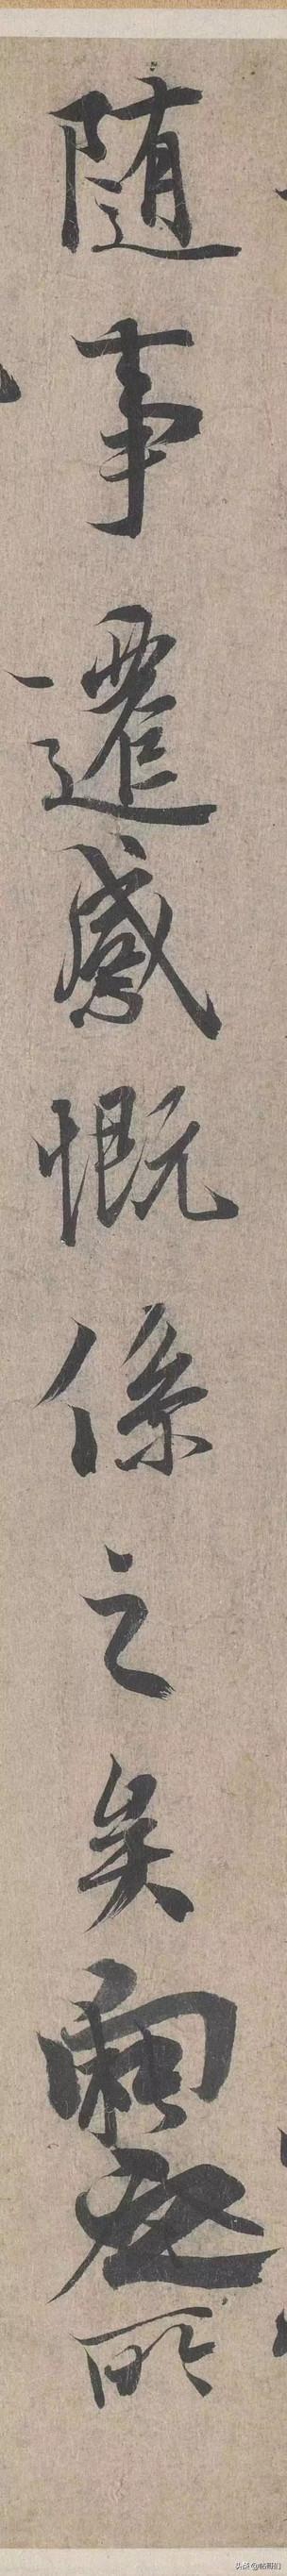 随事遷感慨係之矣向之所
头条@帖哥们